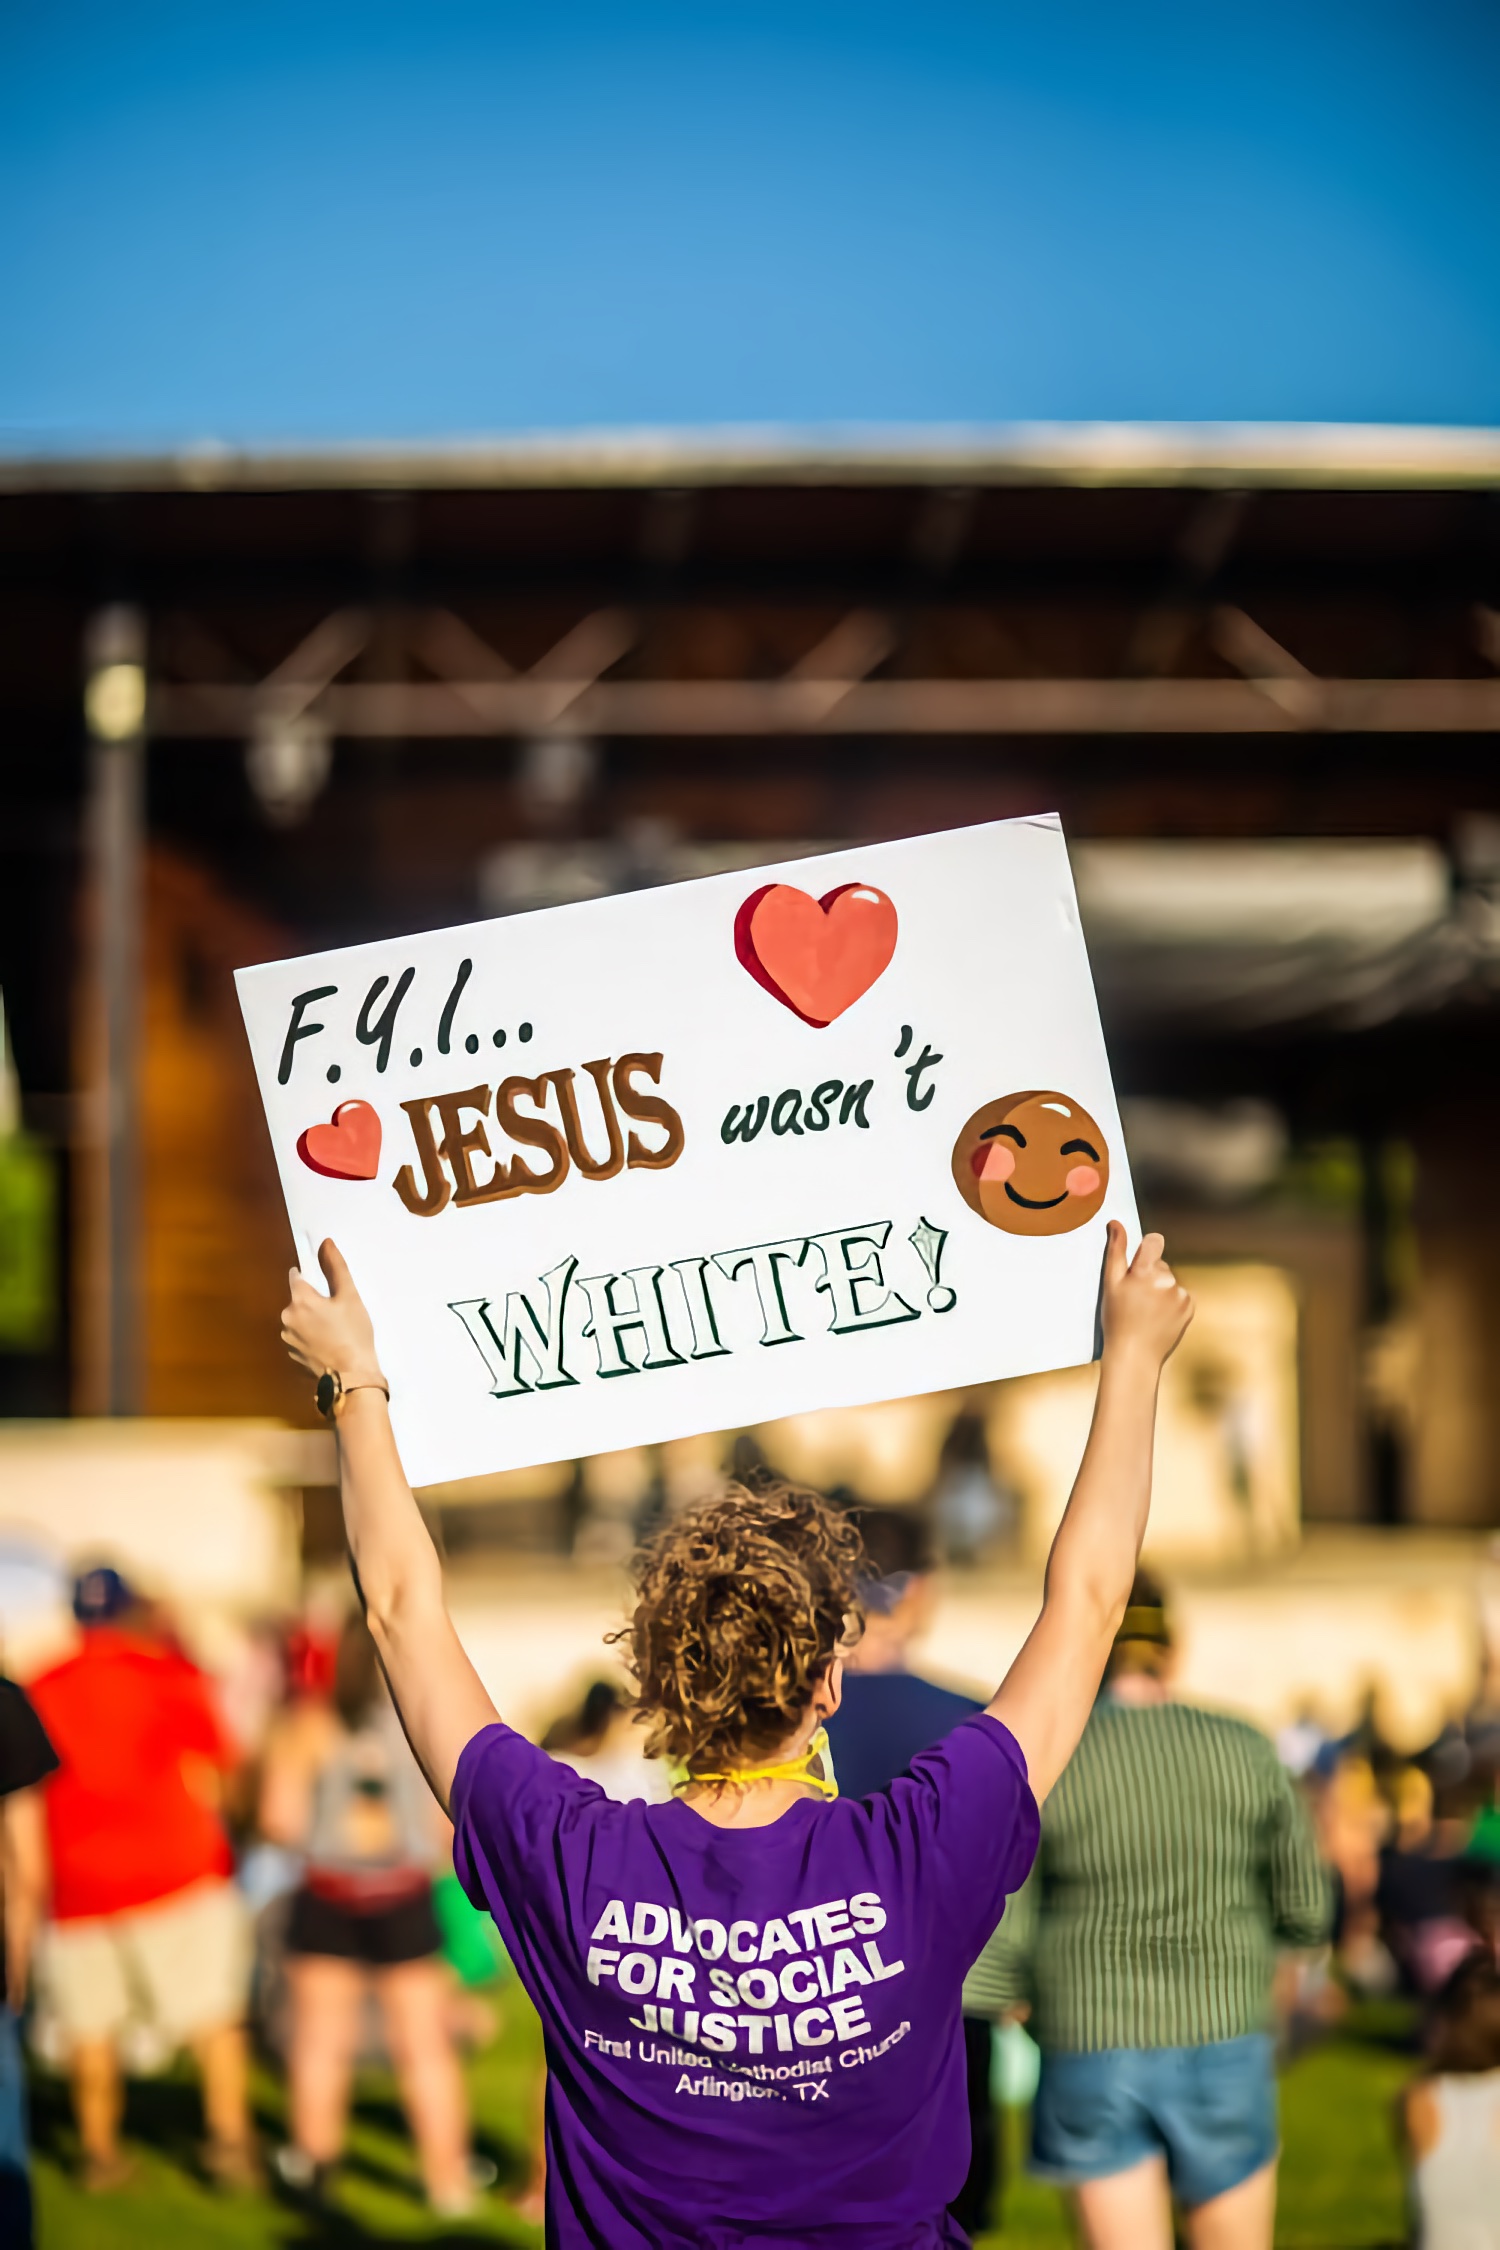 F.Y.I...
JESUS wasn't
WHITE!
ADVOCATES
FOR SOCIAL
JUSTICE
First United Methodist Church
Arlington, TX